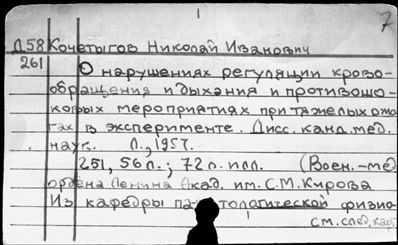 7
Д58 Кочетыгов Николай Иванович
261 О нарушениях регуляции крово-
обращения и дыхания и противошо-
ковых мероприятиях при тяжелых ожо-
гах в эксперименте. Дисс. канд. мед.
наук. Л., 1957.
251, 56 л.; 72 л. илл. (Воен.-мед
ордена Ленина Акад. им. С.М. Кирова
Из кафедры патологической физио-
см. след. кар.